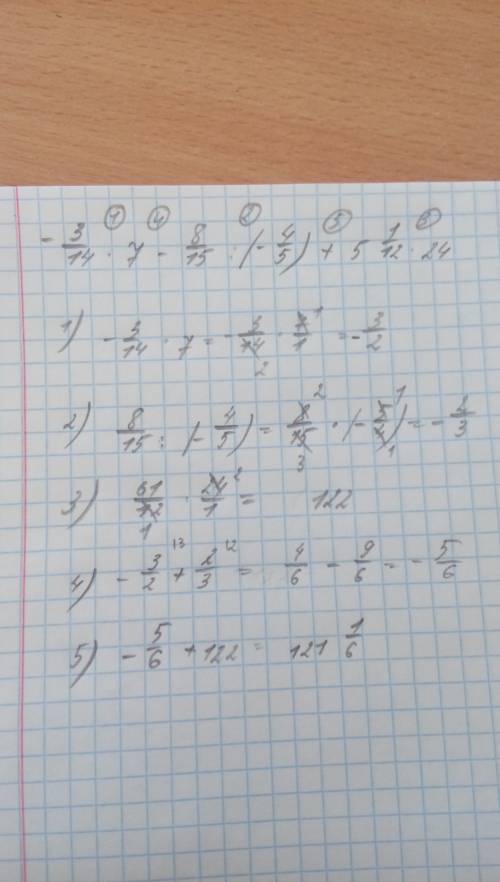 ① ④ ② ⑤ ③
- 3/14 · 7 - 8/15 : (- 4/5) + 5 1/12 · 24
1) - 3/14 · 7 = - 3/14 · 7/1 = - 3/2
2) 8/15 : (- 4/5) = 8/15 · (- 5/4) = - 2/3
3) 61/12 · 24/1 = 122
4) - 3/2 + 2/3 = 4/6 - 9/6 = - 5/6
5) - 5/6 + 122 = 121 1/6